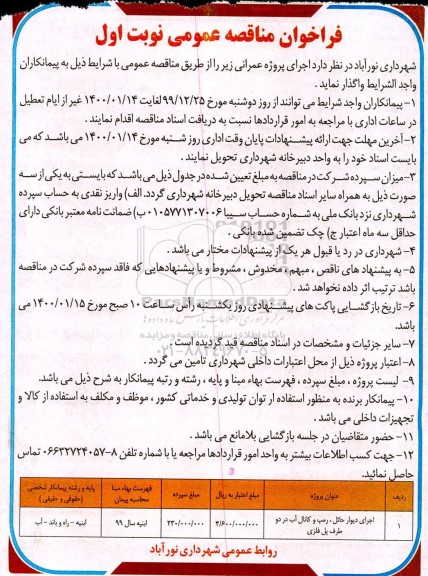 فراخوان مناقصه عمومی نوبت اول
شهرداری نورآباد در نظر دارد اجرای پروژه عمرانی زیر را از طریق مناقصه عمومی با شرایط ذیل به پیمانکاران
واجد الشرایط واگذار نماید .
۱- پیمانکاران واجد شرایط می توانند از روز دوشنبه مورخ ۹۹/۱۲/۲۵ لغایت ۱۴۰۰/۰۱/۱۴ غیر از ایام تعطیل
در ساعات اداری با مراجعه به امور قراردادها نسبت به دریافت اسناد مناقصه اقدام نمایند .
۲- آخرین مهلت جهت ارائه پیشنهادات پایان وقت اداری روز شنبه مورخ ۱۴۰۰/۰۱/۱۴ می باشد که می
بایست اسناد خود را به واحد دبیرخانه شهرداری تحویل نمایند .
۳- میزان سپرده شرکت در مناقصه به مبلغ تعیین شده در جدول ذیل می باشد که بایستی به یکی از سه
صورت ذیل به همراه سایر اسناد مناقصه تحویل دبیرخانه شهرداری گردد. الف) واریز نقدی به حساب سپرده
شهرداری نزد بانک ملی به شماره حساب سیبا ۰۱۰۵۷۷۱۳۰۷۰۰۶ ب) ضمانت نامه معتبر بانکی دارای
حداقل سه ماه اعتبار ج) چک تضمین شده بانکی .
۴- شهرداری در رد یا قبول هر یک از پیشنهادات مختار می باشد .
۵- به پیشنهاد های ناقص ، مبهم ، مخدوش ، مشروط و یا پیشنهادهایی که فاقد سپرده شرکت در مناقصه
باشد ترتیب اثر داده نخواهد شد .
۶- تاریخ بازگشایی پاکت های پیشنهادی روز یکشنبه راس ساعت ۱۰ صبح مورخ ۱۴۰۰/۰۱/۱۵ می
باشد.
۷- سایر جزئیات و مشخصات در اسناد مناقصه قید گردیده است .
۸- اعتبار پروژه ذیل از محل اعتبارات داخلی شهرداری تامین می گردد .
۹- لیست پروژه ، مبلغ سپرده ، فهرست بهاء مبنا و پایه ، رشته و رتبه پیمانکار به شرح ذیل می باشد.
۱۰- پیمانکار برنده به منظور استفاده از توان تولیدی و خدماتی کشور ، موظف و مکلف به استفاده از کالا و
تجهیزات داخلی می باشد .
۱۱- حضور متقاضیان در جلسه بازگشایی بلامانع می باشد .
۱۲- جهت کسب اطلاعات بیشتر به واحد امور قراردادها مراجعه یا با شماره تلفن ۸-۰۶۶۳۲۷۲۴۰۵۷ تماس
حاصل نمائید.
ردیف عنوان پروژه مبلغ اعتبار به ریال مبلغ سپرده فهرست بهاء مبنا محاسبه پیمان پایه و رشته پیمانکار شخصی (حقوقی و حقیقی)
۱ اجرای دیوار حائل ، رمپ و کانال آب در دو طرف پل فلزی ۴/۶۰۰/۰۰۰/۰۰۰ ۲۳۰/۰۰۰/۰۰۰ ابنیه سال ۹۹ ابنیه - راه و باند - آب
روابط عمومی شهرداری نورآباد